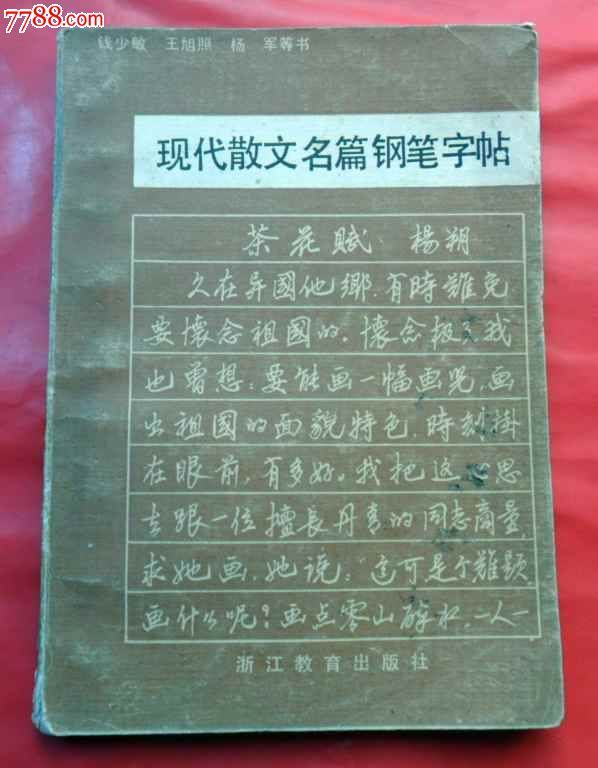 7788.com
钱少敏 王旭照 杨 军等书
现代散文名篇钢笔字帖
茶花赋 楊朔
久在异國他鄉,有時難免
要懷念祖國的。懷念极了,我
也曾想:要能画一幅画児,画
出祖國的面貌特色,時刻掛
在眼前,有多好。我把这心思
去跟一位擅長丹青的同志商量,
求她画,她说:這可是个難題,
画什么呢?画点零山碎水,一人一
浙江教育出版社